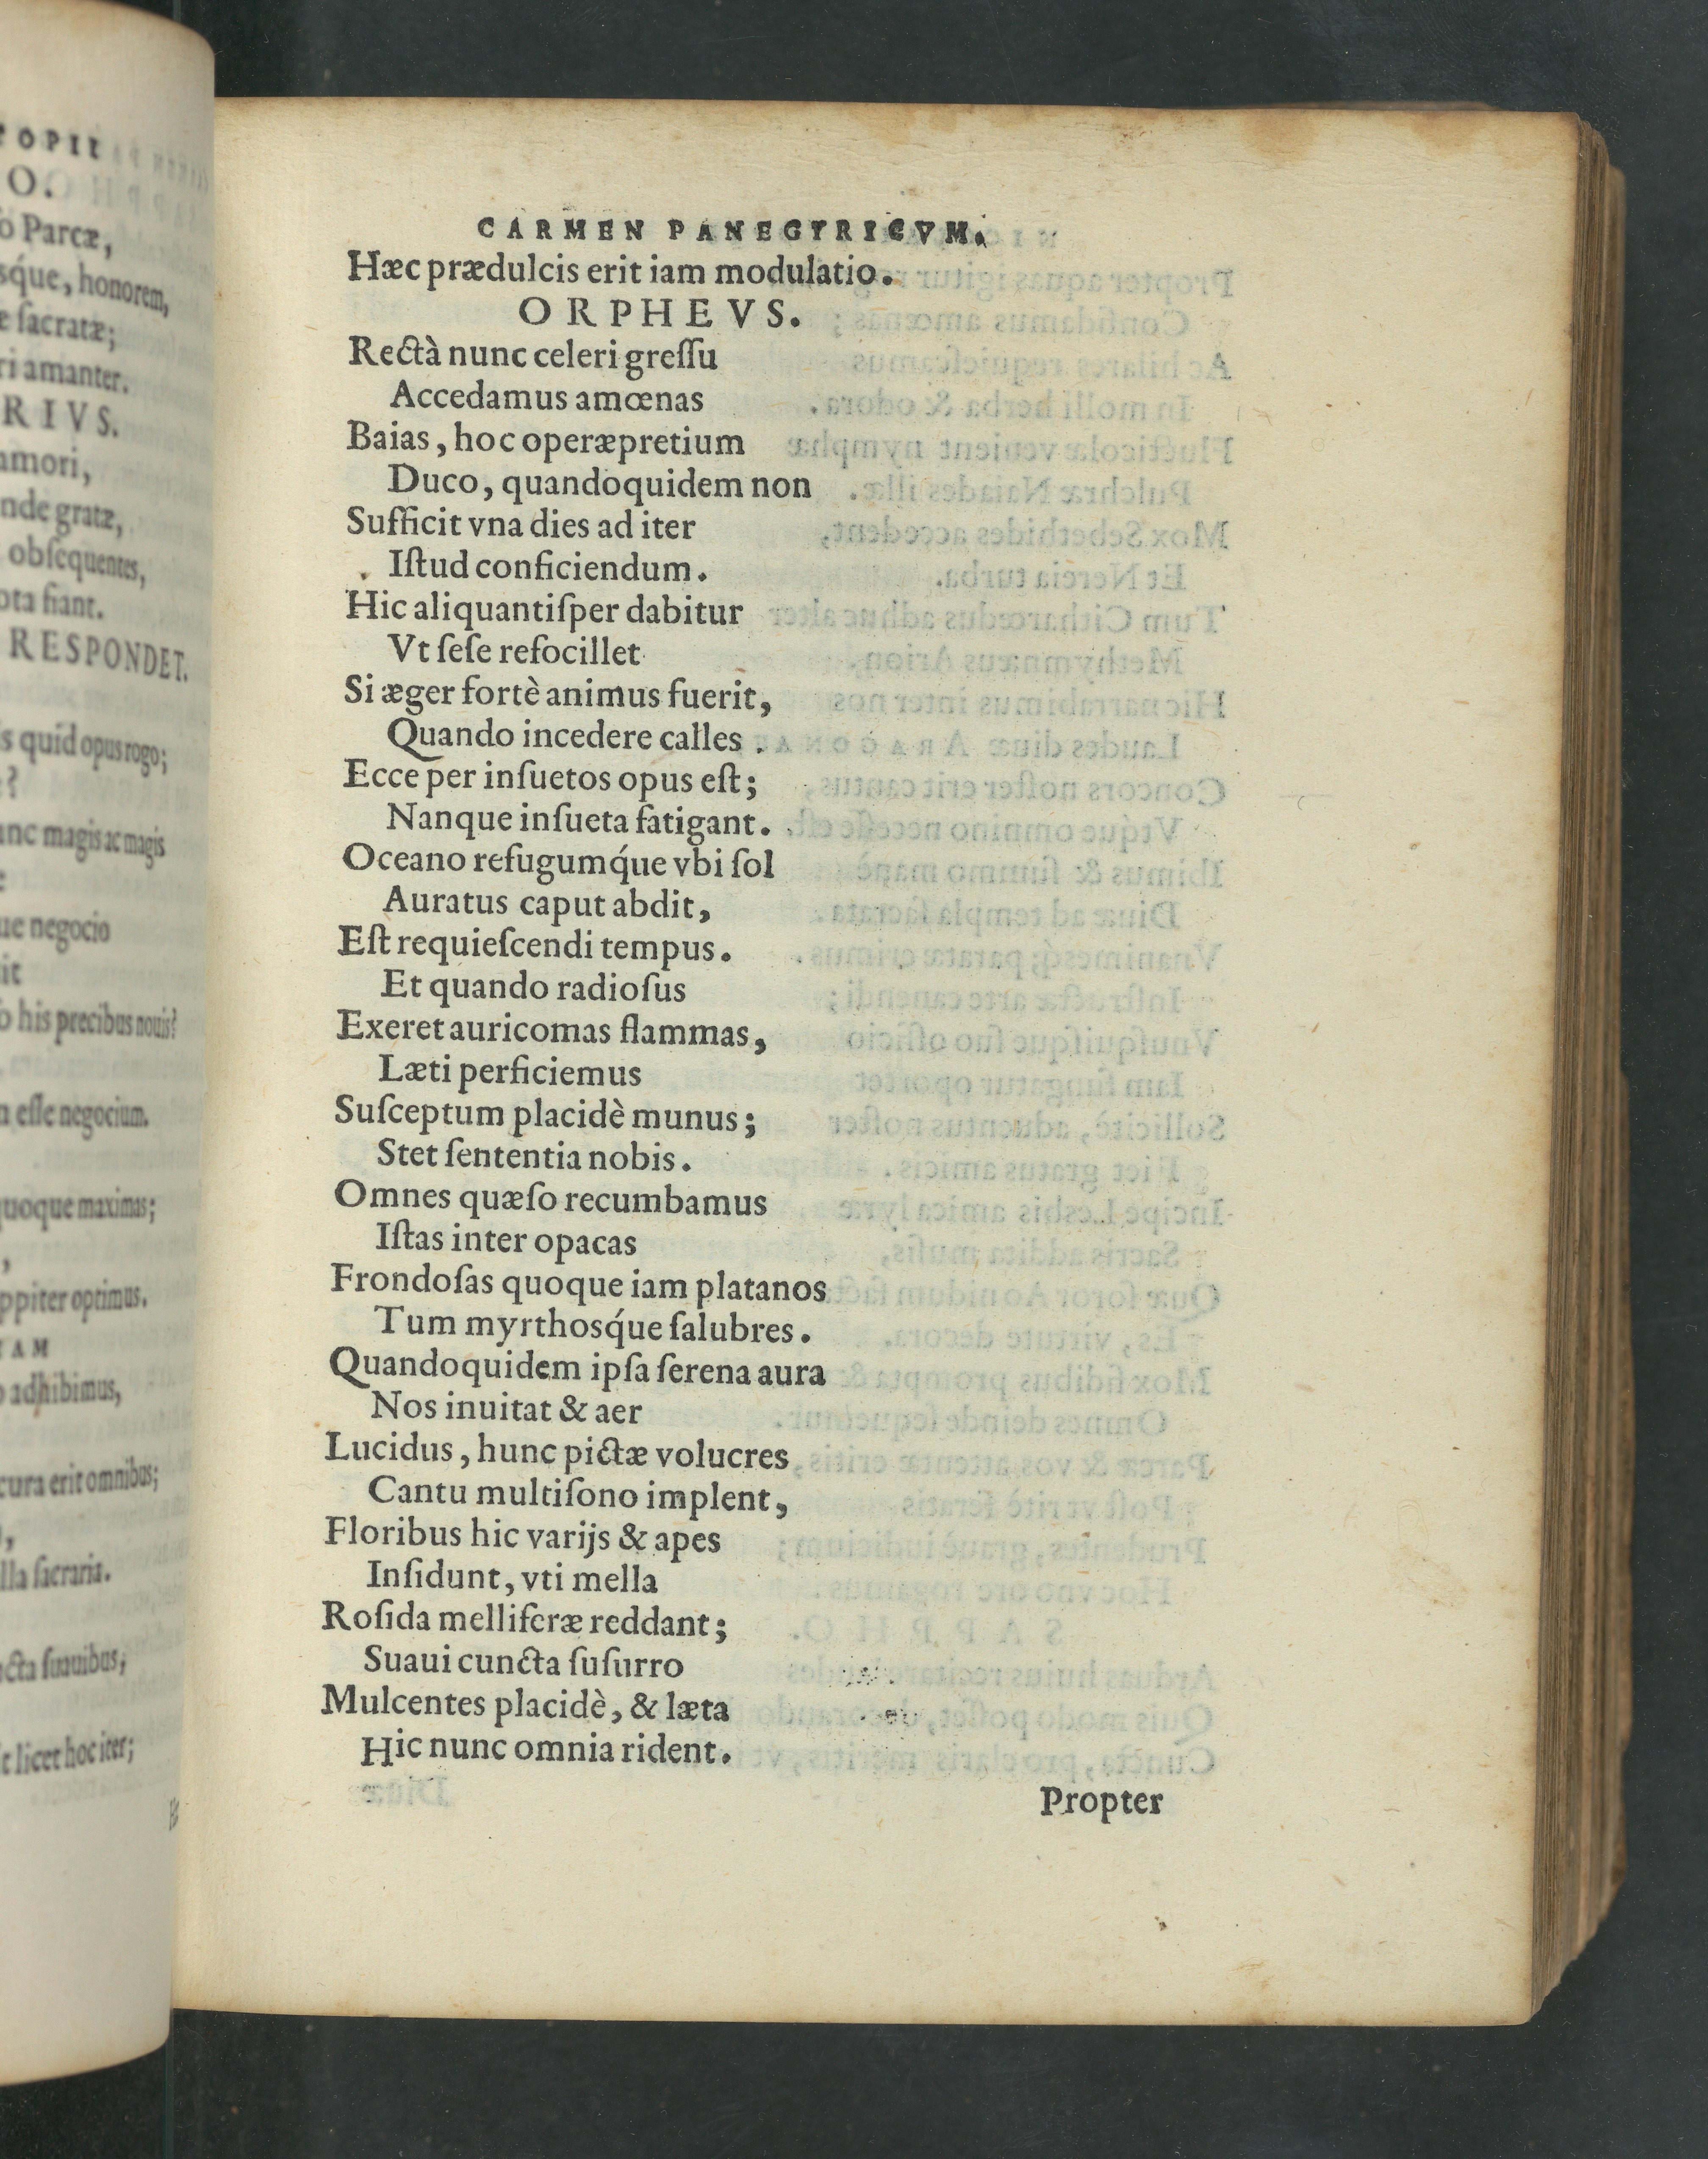 TOPII
O.
Parcæ,
sq́ue, honorem,
ſacratæ;
amanter.
RIVS.
amori,
gratæ,
obſequentes,
fiant.
RESPONDET.
quid opus rogo;
?
magis ac magis
negocio
his precibus nouis?
eſſe negocium.
quoque maximas;
optimus.
adhibimus,
cura erit omnibus;
ſacraria.
ſuauibus,
licet hoc iter;
CARMEN PANEGYRICVM.
Hæc prædulcis erit iam modulatio.
ORPHEVS.
Rectà nunc celeri greſſu
Accedamus amœnas
Baias, hoc operæpretium
Duco, quandoquidem non
Sufficit vna dies ad iter
Iſtud conficiendum.
Hic aliquantiſper dabitur
Vt ſeſe refocillet
Si æger fortè animus fuerit,
Quando incedere calles
Ecce per inſuetos opus eſt;
Nanque inſueta fatigant.
Oceano refugumq́ue vbi ſol
Auratus caput abdit,
Eſt requieſcendi tempus.
Et quando radioſus
Exeret auricomas flammas,
Læti perficiemus
Suſceptum placidè munus;
Stet ſententia nobis.
Omnes quæſo recumbamus
Iſtas inter opacas
Frondoſas quoque iam platanos
Tum myrthosq́ue ſalubres.
Quandoquidem ipſa ſerena aura
Nos inuitat & aer
Lucidus, hunc pictæ volucres
Cantu multiſono implent,
Floribus hic varijs & apes
Inſidunt, vti mella
Roſida melliferæ reddant;
Suaui cuncta ſuſurro
Mulcentes placidè, & læta
Hic nunc omnia rident.
Propter